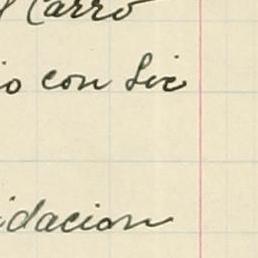 Carro
io con Lic
idacion